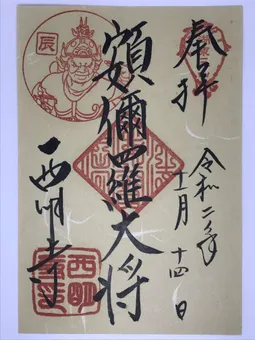 奉拝
令和二年
十一月十四日
頞儞羅大将
西明寺
辰
西明寺印